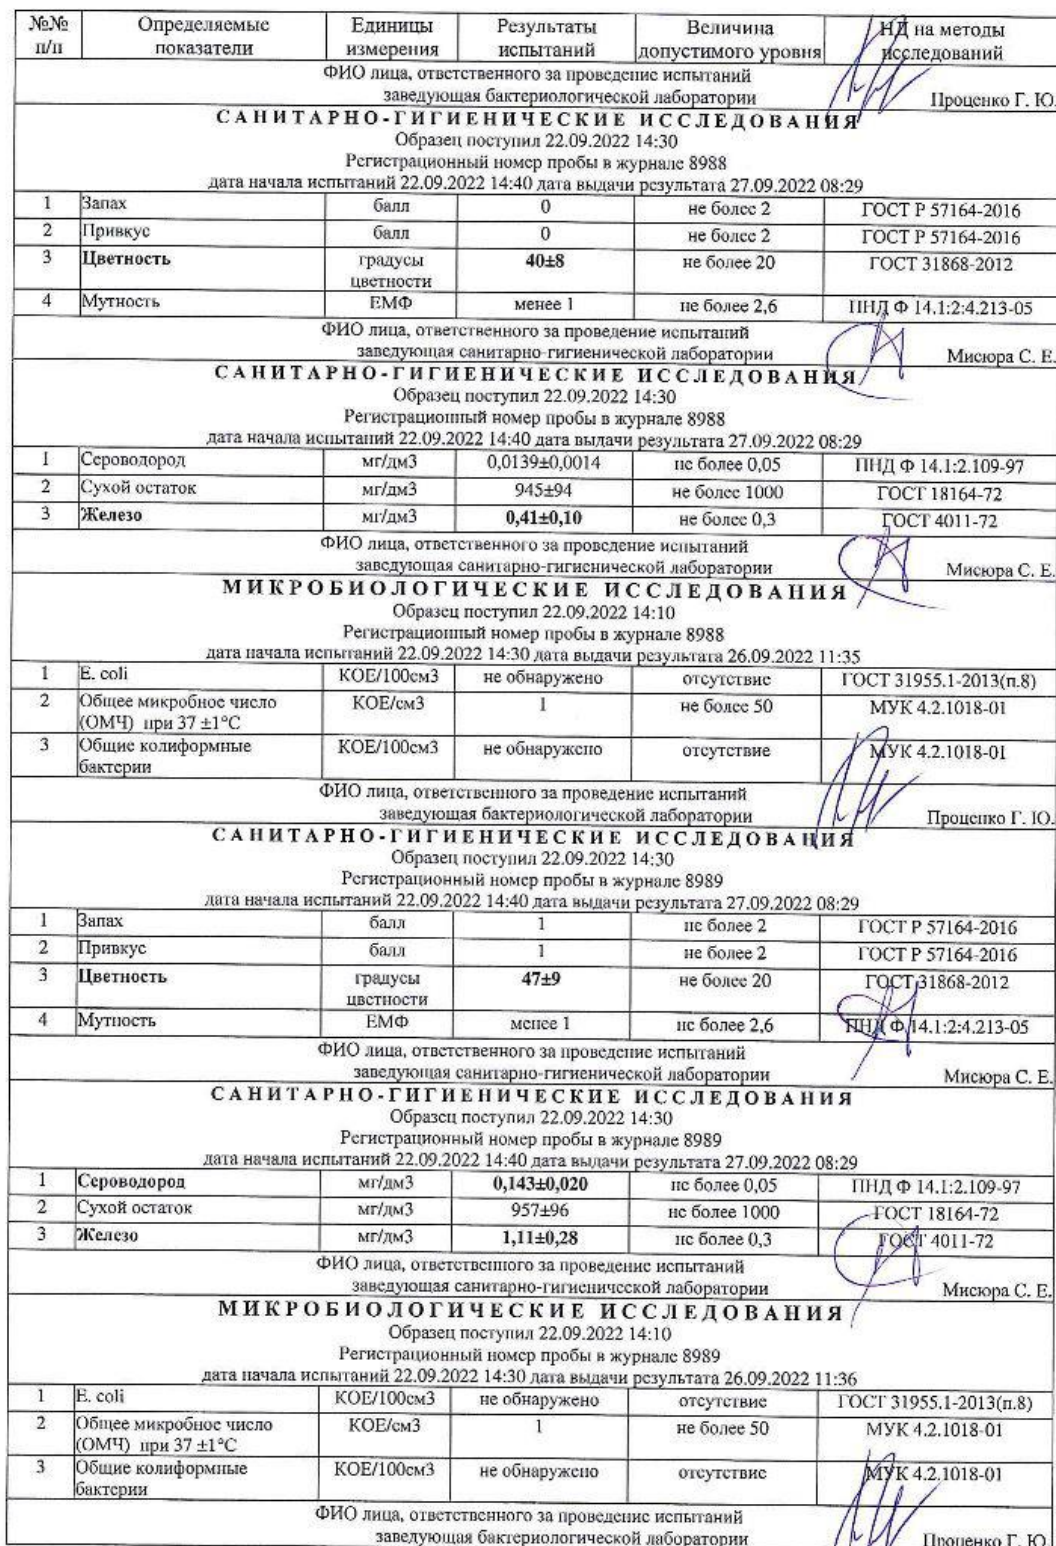 №№ Определяемые Единицы Результаты Величина НД на методы
п/п показатели измерения испытаний допустимого уровня исследований
ФИО лица, ответственного за проведение испытаний
заведующая бактериологической лаборатории Проценко Г. Ю.
САНИТАРНО-ГИГИЕНИЧЕСКИЕ ИССЛЕДОВАНИЯ
Образец поступил 22.09.2022 14:30
Регистрационный номер пробы в журнале 8988
дата начала испытаний 22.09.2022 14:40 дата выдачи результата 27.09.2022 08:29
1 Запах балл 0 не более 2 ГОСТ Р 57164-2016
2 Привкус балл 0 не более 2 ГОСТ Р 57164-2016
3 Цветность градусы 40±8 не более 20 ГОСТ 31868-2012
цветности
4 Мутность ЕМФ менее 1 не более 2,6 ПНД Ф 14.1:2:4.213-05
ФИО лица, ответственного за проведение испытаний
заведующая санитарно-гигиенической лаборатории Мисюра С. Е.
САНИТАРНО-ГИГИЕНИЧЕСКИЕ ИССЛЕДОВАНИЯ
Образец поступил 22.09.2022 14:30
Регистрационный номер пробы в журнале 8988
дата начала испытаний 22.09.2022 14:40 дата выдачи результата 27.09.2022 08:29
1 Сероводород мг/дм3 0,0139±0,0014 не более 0,05 ПНД Ф 14.1:2.109-97
2 Сухой остаток мг/дм3 945±94 не более 1000 ГОСТ 18164-72
3 Железо мг/дм3 0,41±0,10 не более 0,3 ГОСТ 4011-72
ФИО лица, ответственного за проведение испытаний
заведующая санитарно-гигиенической лаборатории Мисюра С. Е.
МИКРОБИОЛОГИЧЕСКИЕ ИССЛЕДОВАНИЯ
Образец поступил 22.09.2022 14:10
Регистрационный номер пробы в журнале 8988
дата начала испытаний 22.09.2022 14:30 дата выдачи результата 26.09.2022 11:35
1 E. coli КОЕ/100см3 не обнаружено отсутствие ГОСТ 31955.1-2013(п.8)
2 Общее микробное число КОЕ/см3 1 не более 50 МУК 4.2.1018-01
(ОМЧ) при 37 ±1°С
3 Общие колиформные КОЕ/100см3 не обнаружено отсутствие МУК 4.2.1018-01
бактерии
ФИО лица, ответственного за проведение испытаний
заведующая бактериологической лаборатории Проценко Г. Ю.
САНИТАРНО-ГИГИЕНИЧЕСКИЕ ИССЛЕДОВАНИЯ
Образец поступил 22.09.2022 14:30
Регистрационный номер пробы в журнале 8989
дата начала испытаний 22.09.2022 14:40 дата выдачи результата 27.09.2022 08:29
1 Запах балл 1 не более 2 ГОСТ Р 57164-2016
2 Привкус балл 1 не более 2 ГОСТ Р 57164-2016
3 Цветность градусы 47±9 не более 20 ГОСТ 31868-2012
цветности
4 Мутность ЕМФ менее 1 не более 2,6 ПНД Ф 14.1:2:4.213-05
ФИО лица, ответственного за проведение испытаний
заведующая санитарно-гигиенической лаборатории Мисюра С. Е.
САНИТАРНО-ГИГИЕНИЧЕСКИЕ ИССЛЕДОВАНИЯ
Образец поступил 22.09.2022 14:30
Регистрационный номер пробы в журнале 8989
дата начала испытаний 22.09.2022 14:40 дата выдачи результата 27.09.2022 08:29
1 Сероводород мг/дм3 0,143±0,020 не более 0,05 ПНД Ф 14.1:2.109-97
2 Сухой остаток мг/дм3 957±96 не более 1000 ГОСТ 18164-72
3 Железо мг/дм3 1,11±0,28 не более 0,3 ГОСТ 4011-72
ФИО лица, ответственного за проведение испытаний
заведующая санитарно-гигиенической лаборатории Мисюра С. Е.
МИКРОБИОЛОГИЧЕСКИЕ ИССЛЕДОВАНИЯ
Образец поступил 22.09.2022 14:10
Регистрационный номер пробы в журнале 8989
дата начала испытаний 22.09.2022 14:30 дата выдачи результата 26.09.2022 11:36
1 E. coli КОЕ/100см3 не обнаружено отсутствие ГОСТ 31955.1-2013(п.8)
2 Общее микробное число КОЕ/см3 1 не более 50 МУК 4.2.1018-01
(ОМЧ) при 37 ±1°С
3 Общие колиформные КОЕ/100см3 не обнаружено отсутствие МУК 4.2.1018-01
бактерии
ФИО лица, ответственного за проведение испытаний
заведующая бактериологической лаборатории Проценко Г. Ю.